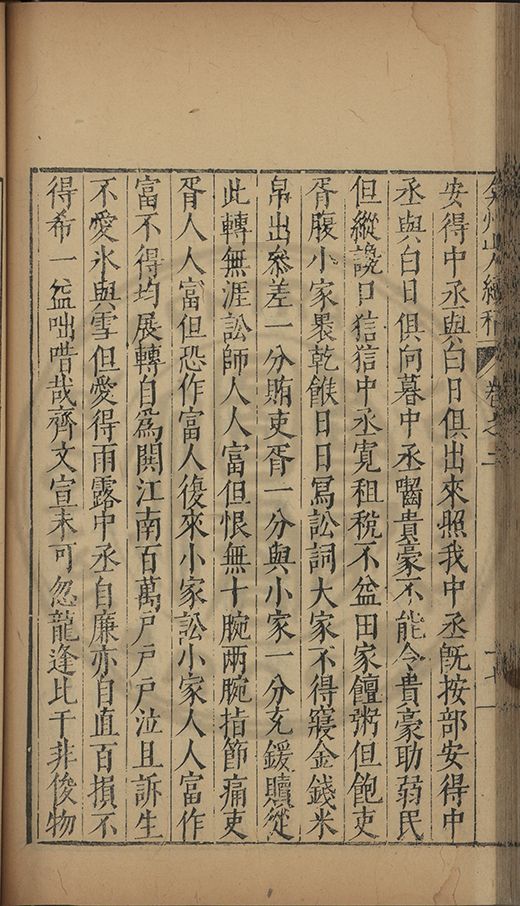 弇州山人續稿 卷之二 十七
安得中丞與白日俱出來照我中丞旣按部安得中
丞與白日俱向暮中丞嚼貴豪不能令貴豪助弱民
但縱讒口狺狺中丞寬租稅不益田家饘粥但飽吏
胥腹小家褁乾餱日日寫訟詞大家不得寢金錢米
帛出叅差一分賄吏胥一分與小家一分充鍰贖從
此轉無涯訟師人人富但恨無十腕兩腕指節痛吏
胥人人富但恐作富人後來小家訟小家人人富作
富不得均展轉自爲閧江南百萬戸戸戸泣且訴生
不愛氷與雪但愛得雨露中丞自廉亦自直百損不
得希一益咄唶哉齊文宣未可忽龍逢比干非俊物